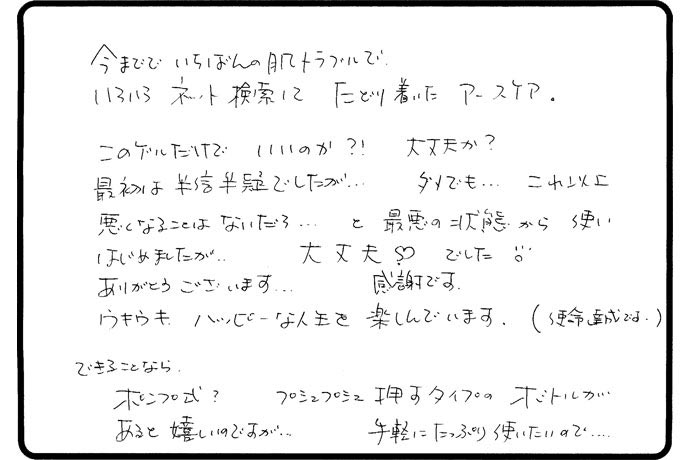 今までで いちばんの肌トラブルで、
いろいろ ネット検索して たどり着いた アースケア。
このゲルだけで いいのか?! 大丈夫か?
最初は 半信半疑でしたが… ダメでも… これ以上
悪くなることは ないだろ… と 最悪の状態から 使い
はじめましたが.. 大丈夫♡ でした
ありがとうございます… 感謝です。
ウキウキ ハッピーな人生を 楽しんでいます。(使命達成です。)
できることなら、
ポンプ式? プシュプシュ 押すタイプの ボトルが
あると 嬉しいのですが… 手軽に たっぷり 使いたいので….